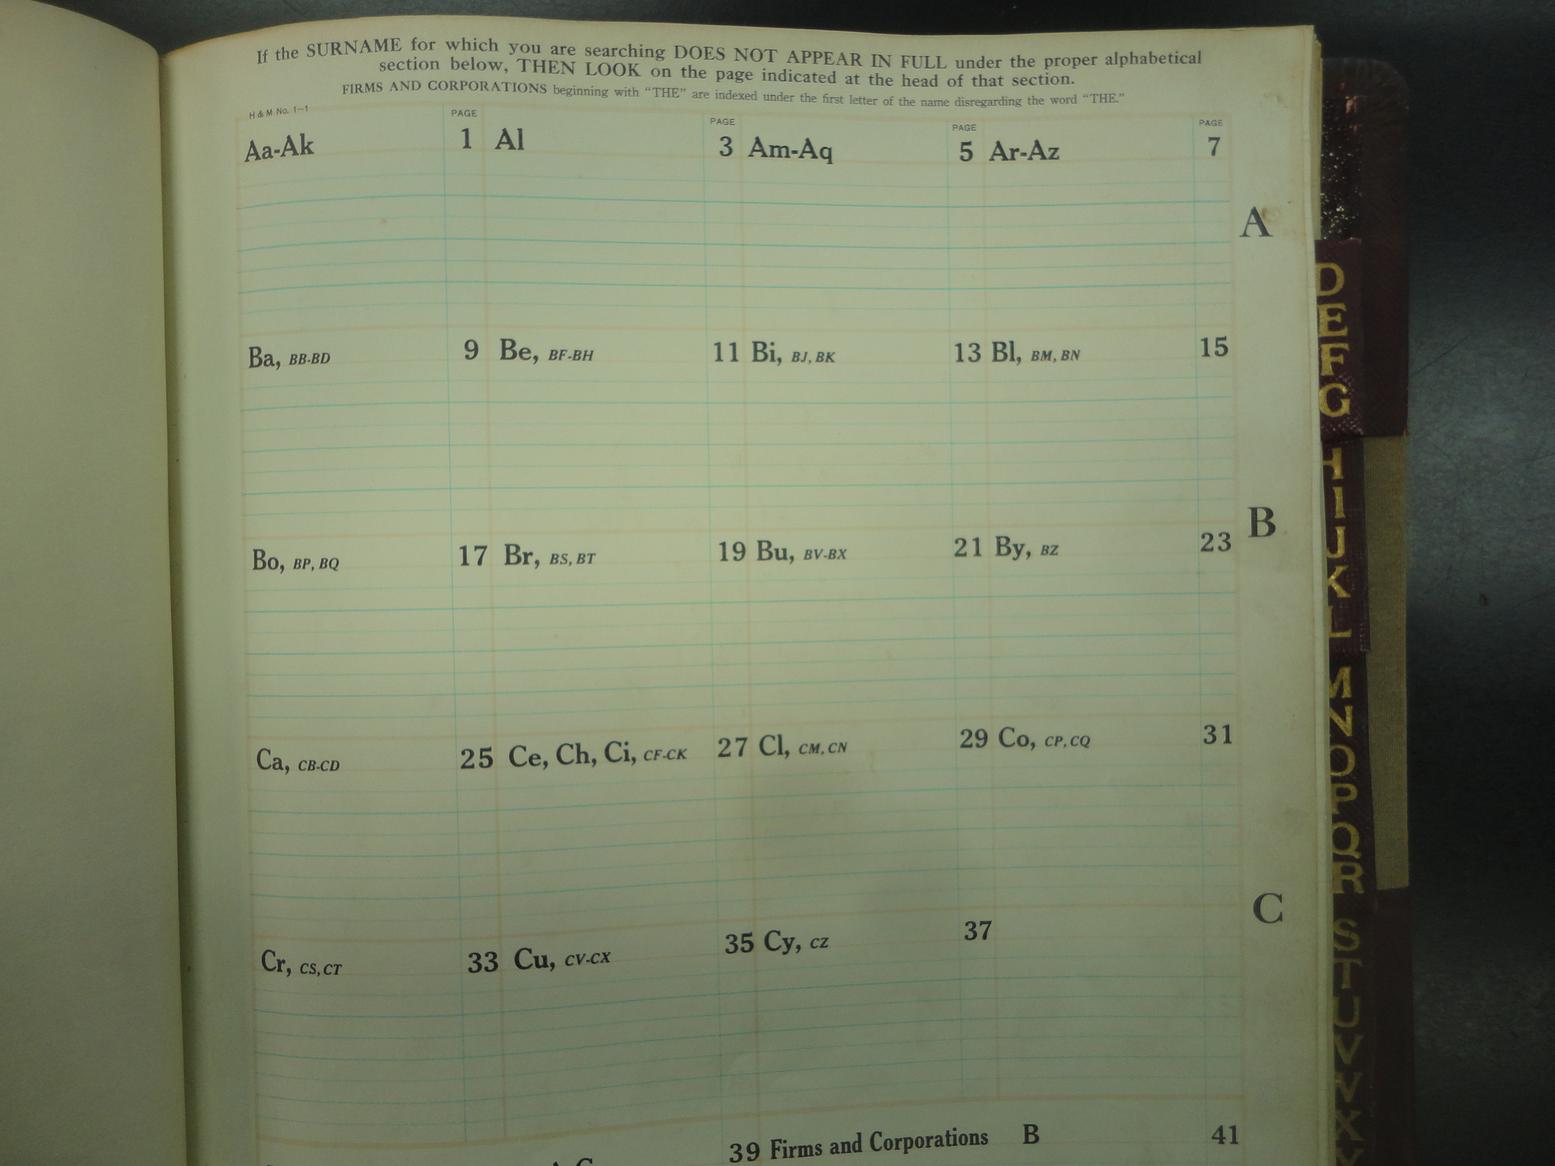 If the SURNAME for which you are searching DOES NOT APPEAR IN FULL under the proper alphabetical
section below, THEN LOOK on the page indicated at the head of that section.
FIRMS AND CORPORATIONS beginning with "THE" are indexed under the first letter of the name disregarding the word "THE."
H & M No. 1-1 PAGE PAGE PAGE PAGE
Aa-Ak 1 Al 3 Am-Aq 5 Ar-Az 7
A
Ba, BB-BD 9 Be, BF-BH 11 Bi, BJ, BK 13 Bl, BM, BN 15
B
Bo, BP, BQ 17 Br, BS, BT 19 Bu, BV-BX 21 By, BZ 23
Ca, CB-CD 25 Ce, Ch, Ci, CF-CK 27 Cl, CM, CN 29 Co, CP, CQ 31
C
Cr, CS, CT 33 Cu, CV-CX 35 Cy, CZ 37
39 Firms and Corporations B 41
D
E
F
G
H
I
J
K
L
M
N
O
P
Q
R
S
T
U
V
W
X